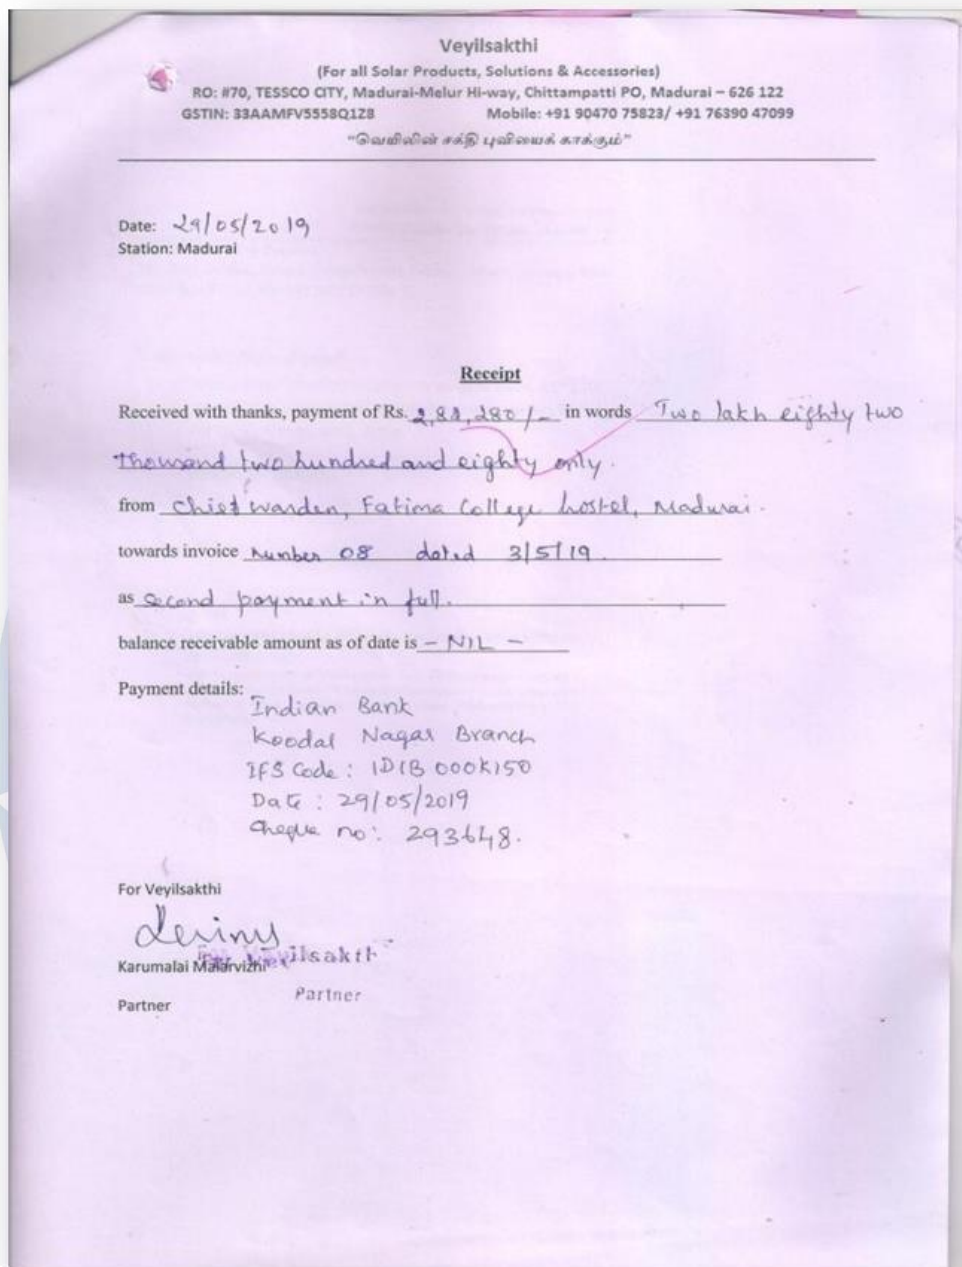 Veyilsakthi
(For all Solar Products, Solutions & Accessories)
RO: #70, TESSCO CITY, Madurai-Melur Hi-way, Chittampatti PO, Madurai – 626 122
GSTIN: 33AAMFV5558Q1Z8 Mobile: +91 90470 75823/ +91 76390 47099
"வெயிலின் சக்தி புவியைக் காக்கும்"
Date: 29/05/2019
Station: Madurai
Receipt
Received with thanks, payment of Rs. 2,82,280/- in words Two lakh eighty two
thousand two hundred and eighty only.
from Chief warden, Fatima College hostel, Madurai.
towards invoice Number 08 dated 3/5/19.
as second payment in full.
balance receivable amount as of date is - NIL -
Payment details:
Indian Bank
Koodal Nagar Branch
IFS Code: IDIB000K150
Date: 29/05/2019
Cheque no: 293648.
For Veyilsakthi
Karumalai Malarvizhi
Partner
Partner